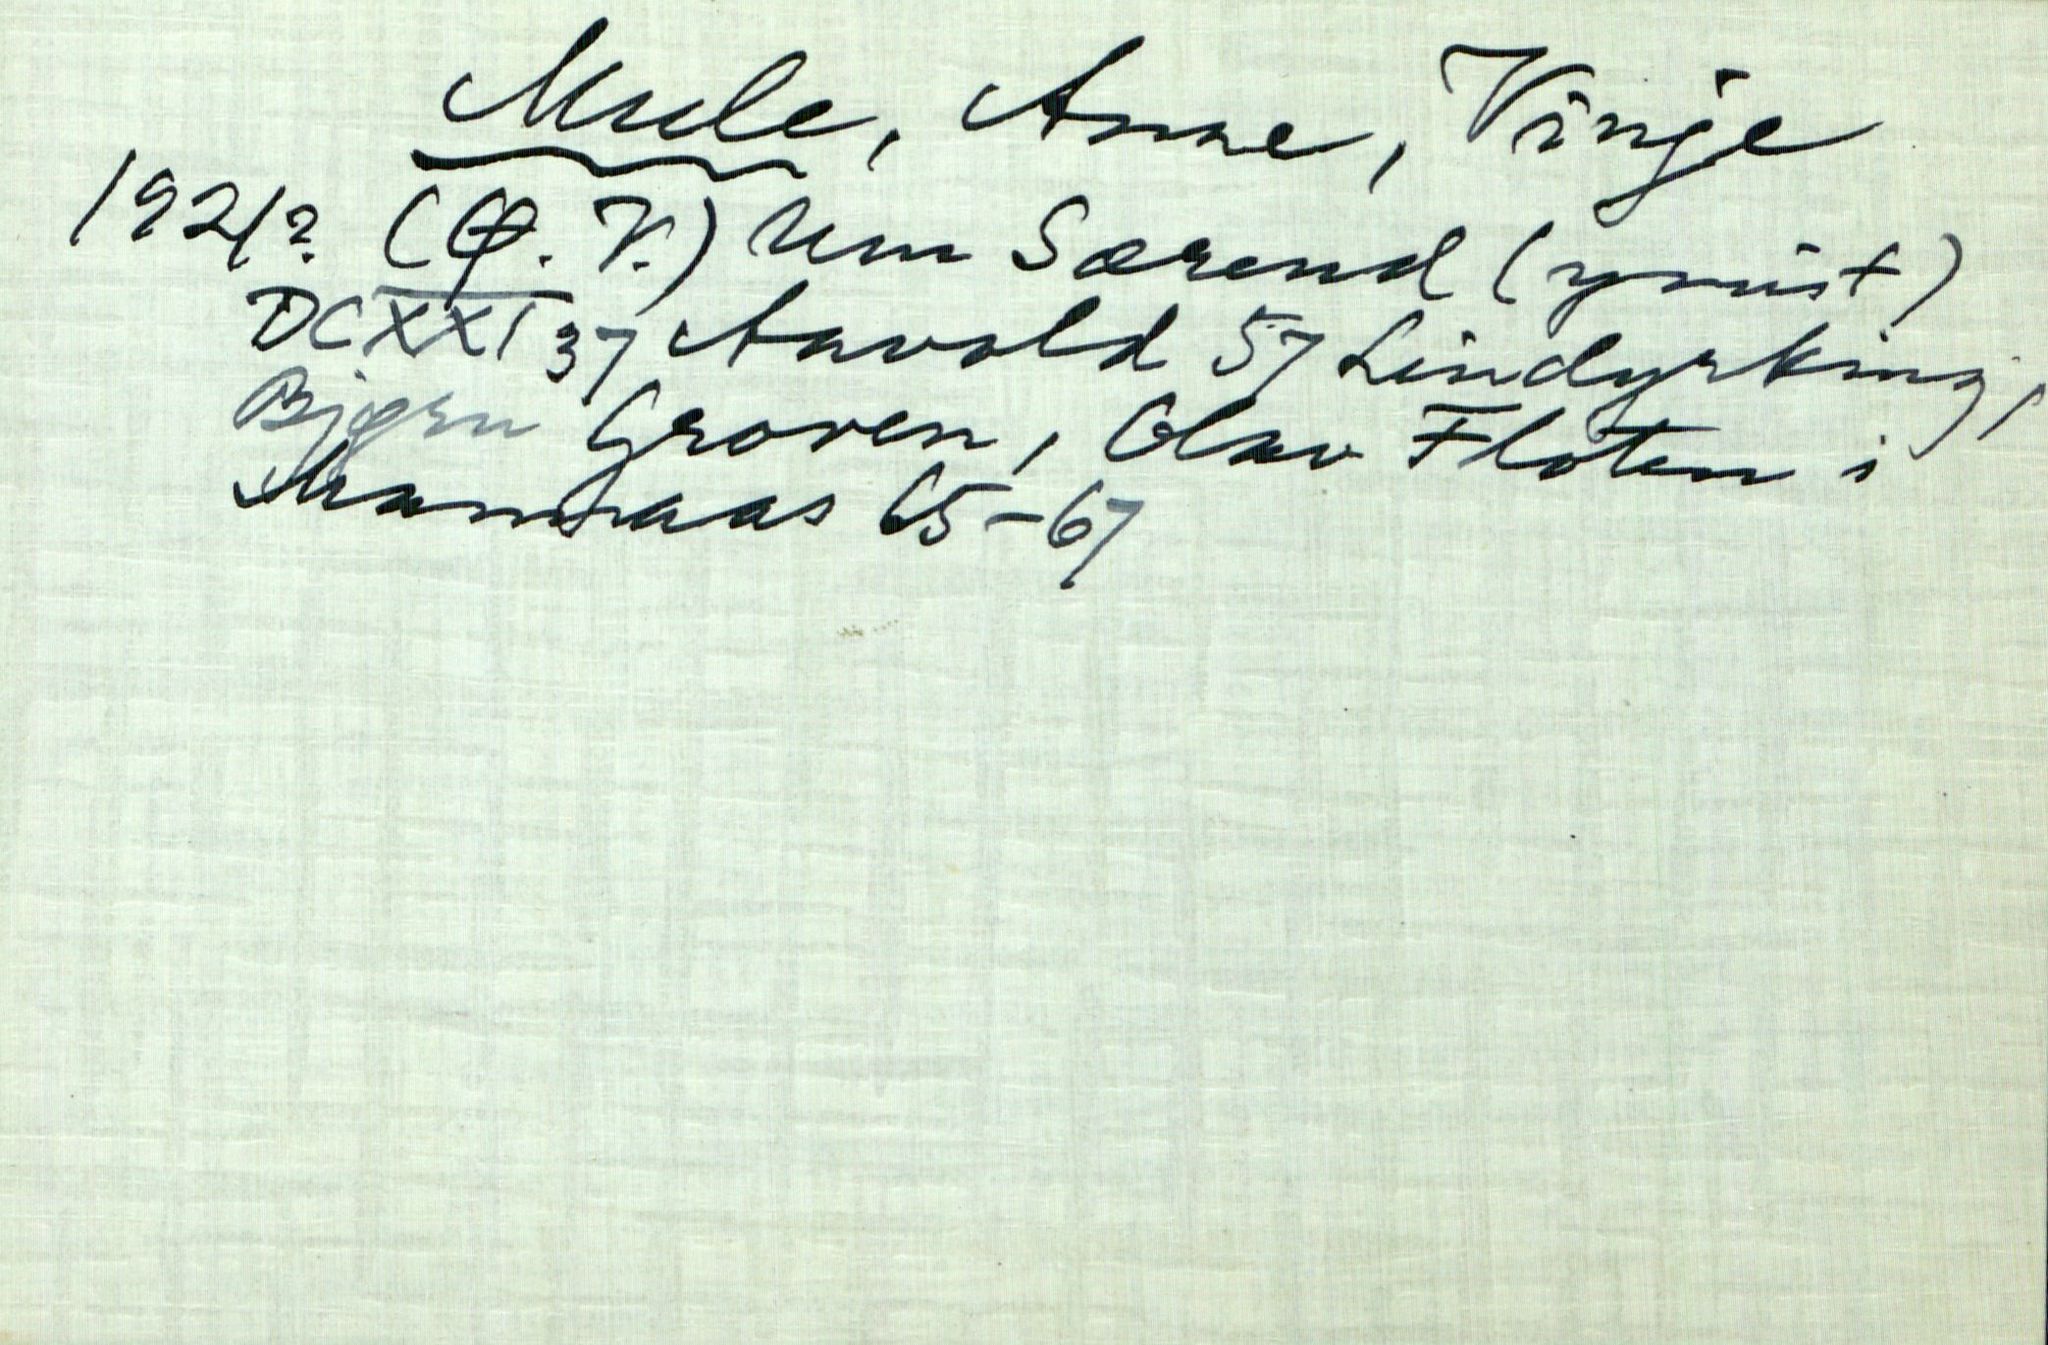 Mule, Anne, Vinje
1921? (Ø. V.) Um Særend (ymist)
DCXXI 37 Aavold 57 Lindyrking,
Bjørn Groven, Olav Floten i
Mannaas 65-67